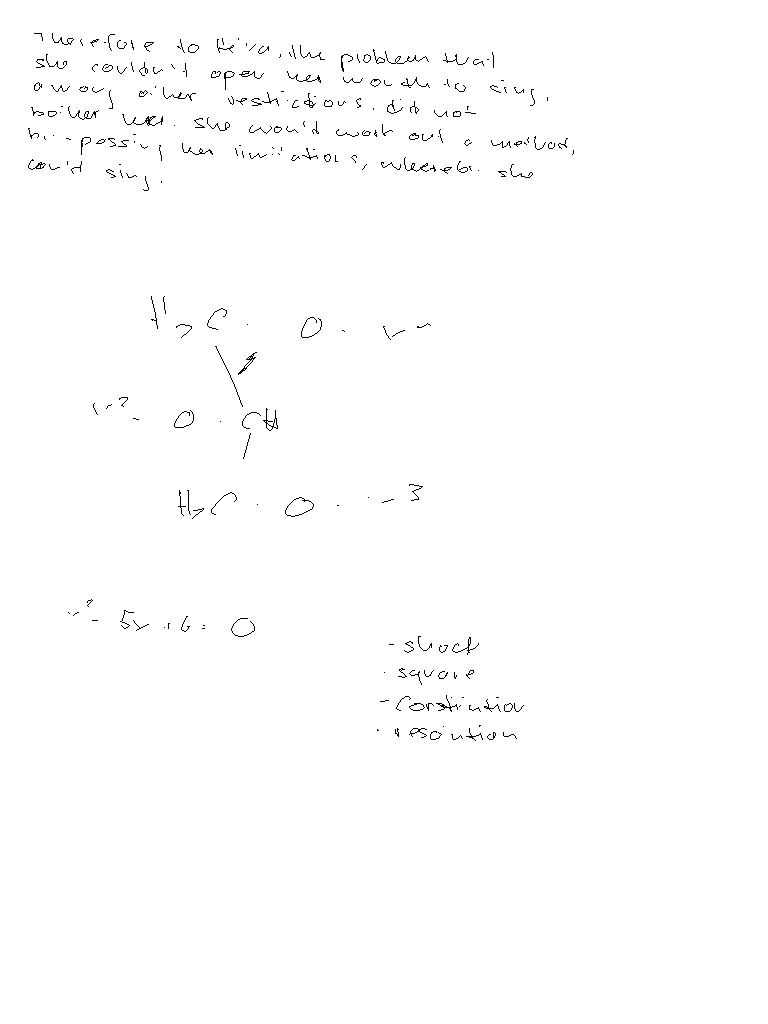 Therefore to the problem that
she couldn't open her mouth to sing,
among other restrictions. did not
bother her. she would work out a method,
by-passing her limitations, whereby she
could sing.
H₂C - O -
- O - CH
H₂C - O -
- 5x + 6 = 0
- square
- constitution
- resolution